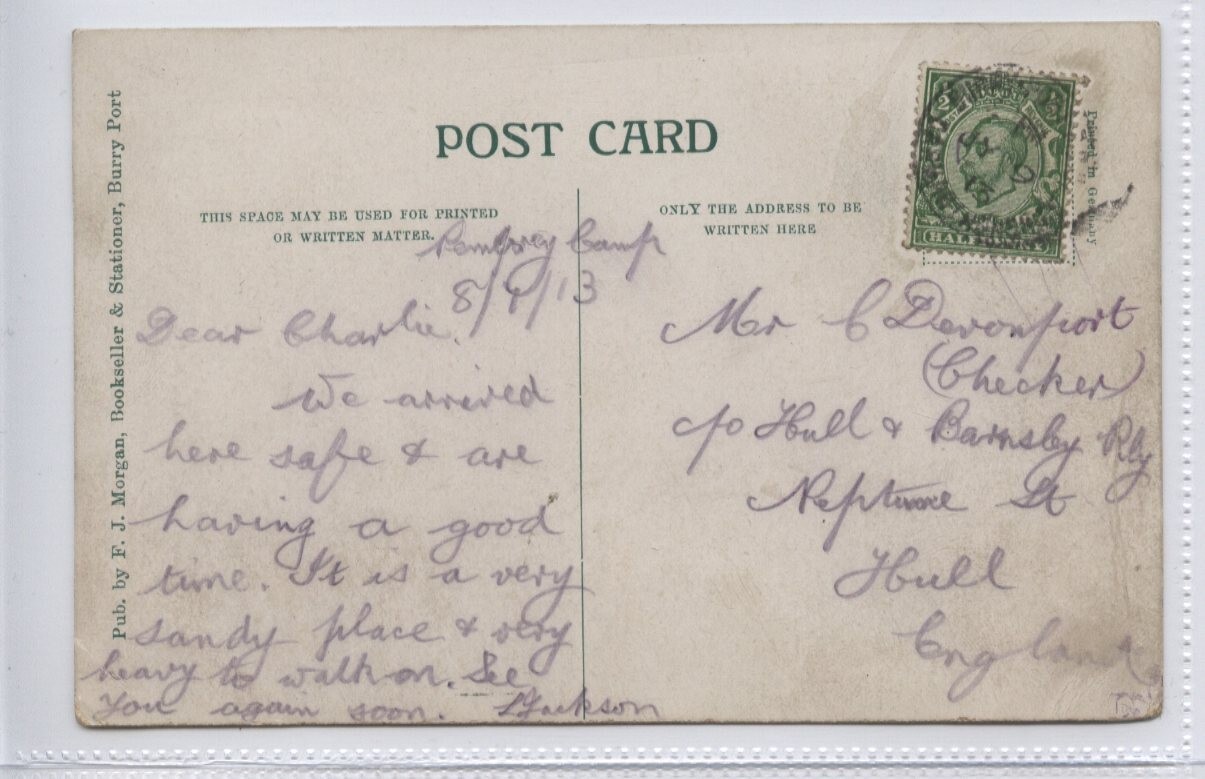 POST CARD
Pub. by F. J. Morgan, Bookseller & Stationer, Burry Port
THIS SPACE MAY BE USED FOR PRINTED
OR WRITTEN MATTER.
ONLY THE ADDRESS TO BE
WRITTEN HERE
Printed in Germany
HALF
Pembrey Camp
8/9/13
Dear Charlie.
We arrived
here safe & are
having a good
time. It is a very
sandy place & very
heavy to walk on. See
You again soon. Jackson
Mr C Devonport
(Checker)
c/o Hull & Barnsley Rly
Neptune St
Hull
England